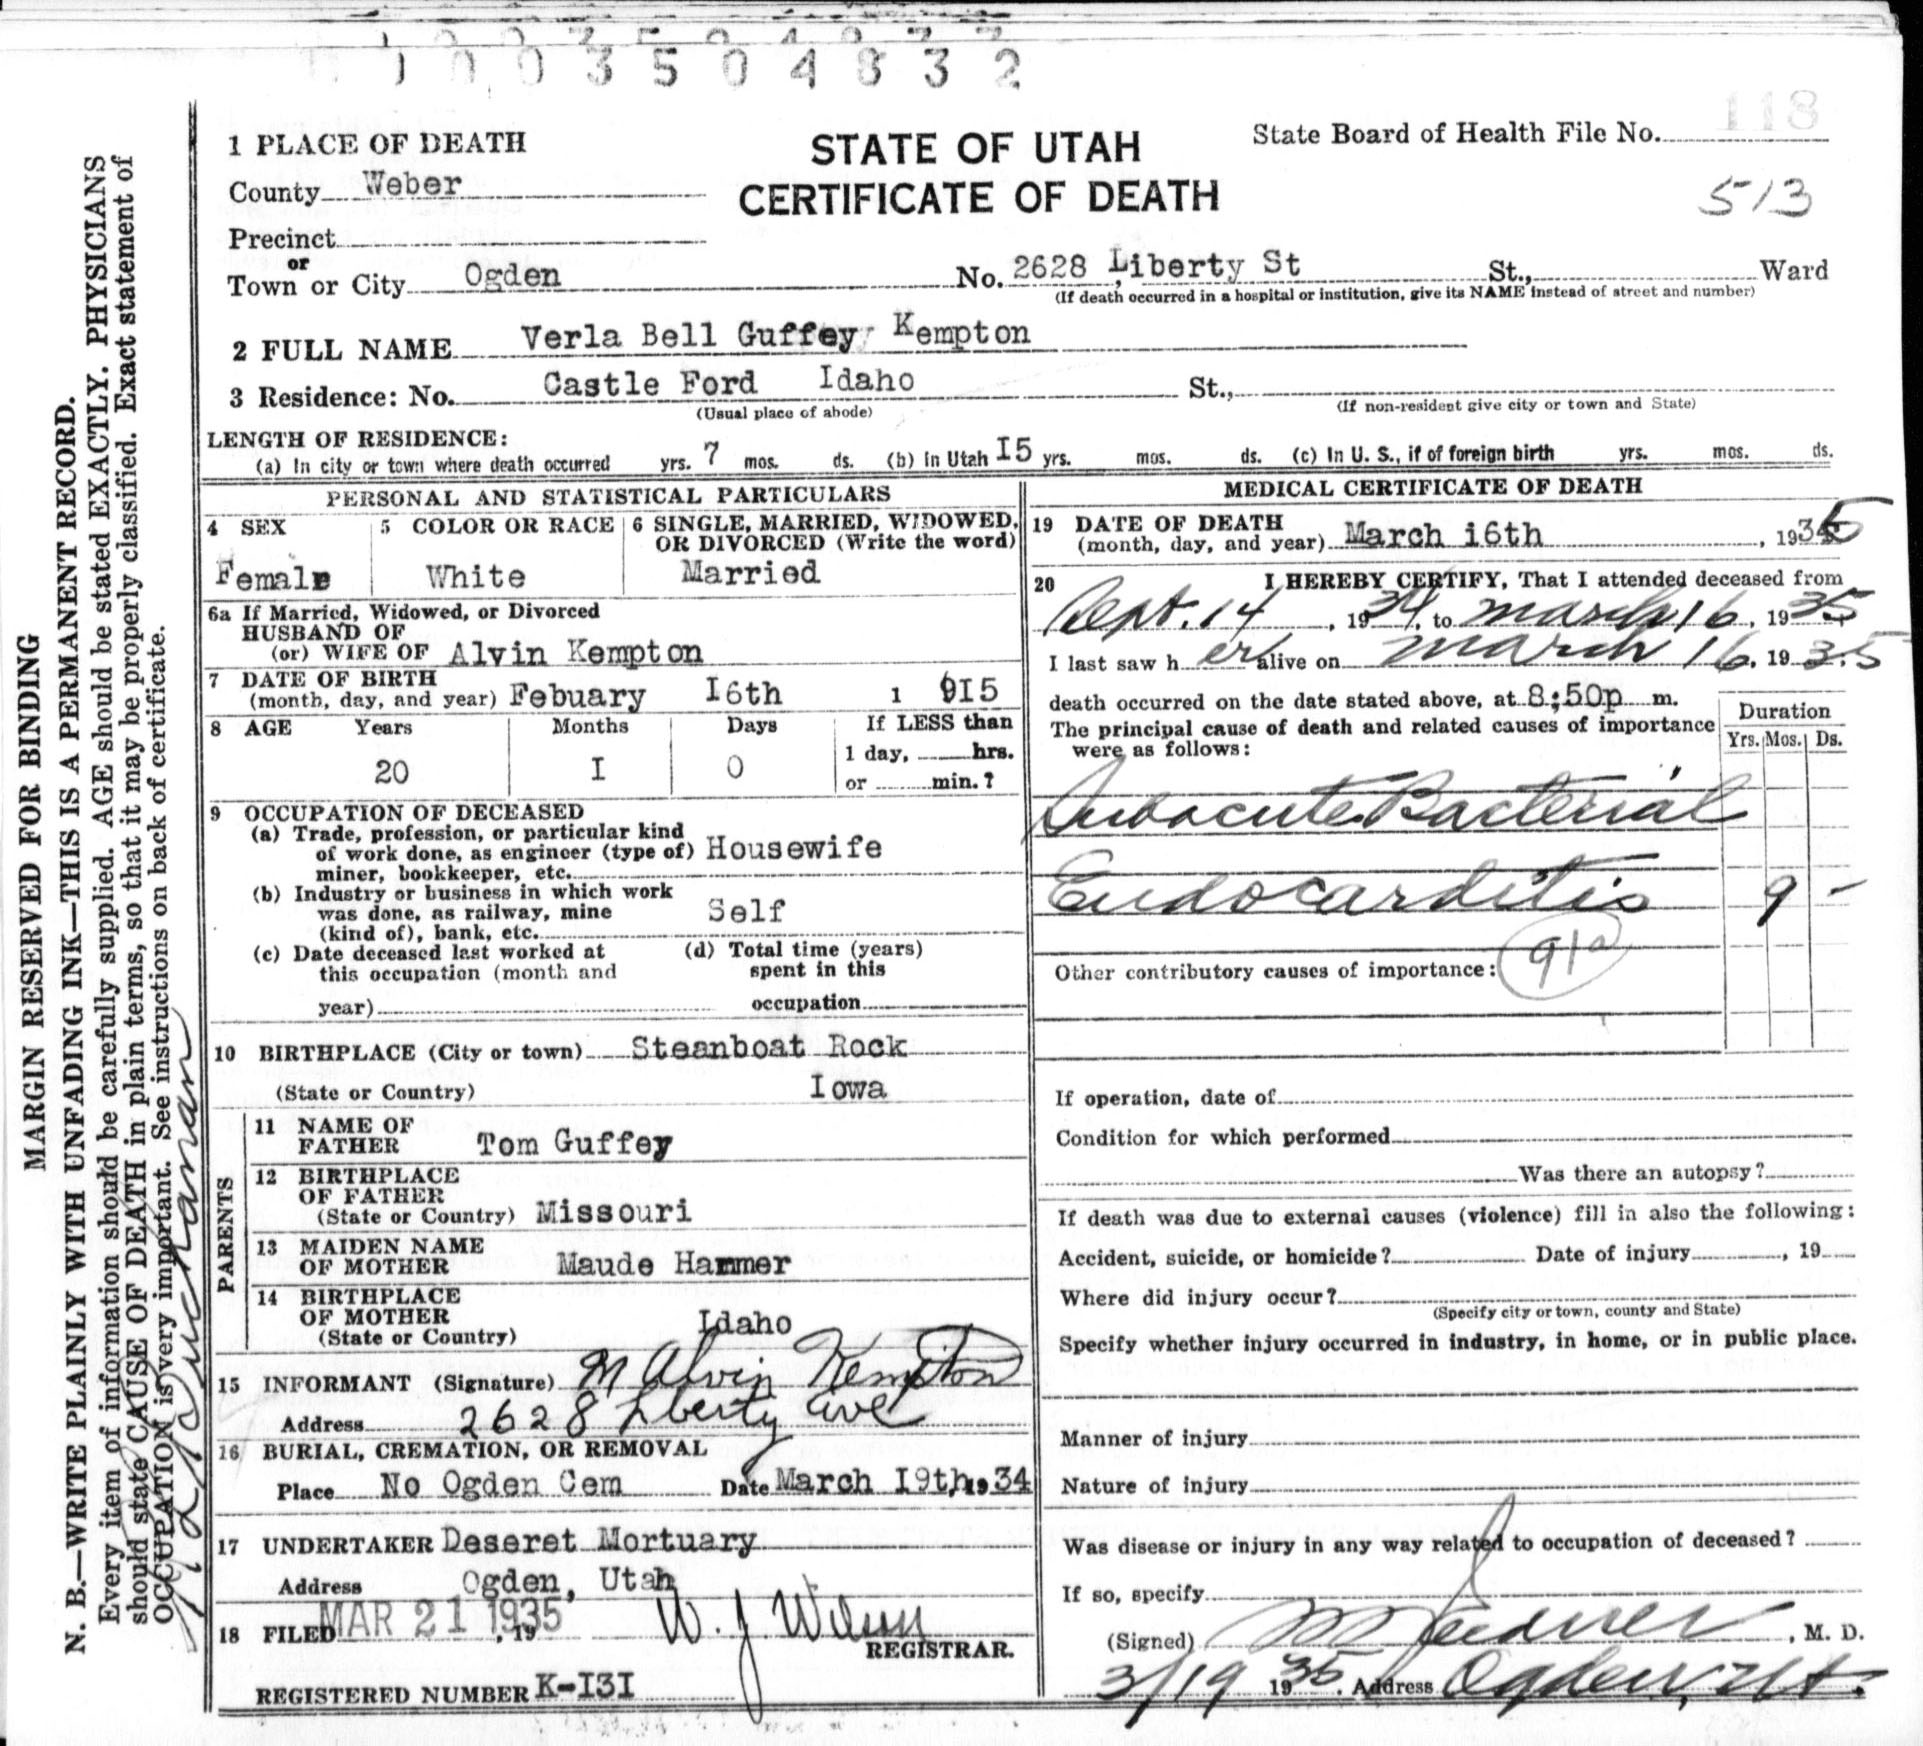 1 0 0 3 5 0 4 8 3 2
118
1 PLACE OF DEATH
STATE OF UTAH
CERTIFICATE OF DEATH
State Board of Health File No.
513
County Weber
Precinct
or
Town or City Ogden No. 2628 Liberty St St., Ward
(If death occurred in a hospital or institution, give its NAME instead of street and number)
2 FULL NAME Verla Bell Guffey Kempton
3 Residence: No. Castle Ford Idaho St.,
(Usual place of abode) (If non-resident give city or town and State)
LENGTH OF RESIDENCE:
(a) In city or town where death occurred yrs. 7 mos. ds. (b) In Utah I5 yrs. mos. ds. (c) In U. S., if of foreign birth yrs. mos. ds.
PERSONAL AND STATISTICAL PARTICULARS
4 SEX
Female
5 COLOR OR RACE
White
6 SINGLE, MARRIED, WIDOWED,
OR DIVORCED (Write the word)
Married
6a If Married, Widowed, or Divorced
HUSBAND OF
(or) WIFE OF Alvin Kempton
7 DATE OF BIRTH
(month, day, and year) Febuary I6th 1 9I5
8 AGE Years Months Days If LESS than
1 day, hrs.
20 I 0
or min.?
9 OCCUPATION OF DECEASED
(a) Trade, profession, or particular kind
of work done, as engineer (type of) Housewife
miner, bookkeeper, etc.
(b) Industry or business in which work
was done, as railway, mine Self
(kind of), bank, etc.
(c) Date deceased last worked at
this occupation (month and
year)
(d) Total time (years)
spent in this
occupation
10 BIRTHPLACE (City or town) Steanboat Rock
(State or Country) Iowa
PARENTS
11 NAME OF
FATHER Tom Guffey
12 BIRTHPLACE
OF FATHER
(State or Country) Missouri
13 MAIDEN NAME
OF MOTHER Maude Hammer
14 BIRTHPLACE
OF MOTHER
(State or Country) Idaho
15 INFORMANT (Signature) M Alvin Kempton
Address 2628 Liberty ave
16 BURIAL, CREMATION, OR REMOVAL
Place No Ogden Cem Date March I9th, 1934
17 UNDERTAKER Deseret Mortuary
Address Ogden, Utah
18 FILED MAR 21 1935 , 19 W. J. Wilson
REGISTRAR.
REGISTERED NUMBER K-I3I
MEDICAL CERTIFICATE OF DEATH
19 DATE OF DEATH
(month, day, and year) March i6th , 1935
20 I HEREBY CERTIFY, That I attended deceased from
Sept. 14, 1934, to March 16, 1935
I last saw her alive on March 16, 1935
death occurred on the date stated above, at 8;50p m.
The principal cause of death and related causes of importance
were as follows:
Duration
Yrs. Mos. Ds.
Subacute Bacterial
Endocarditis 9 -
91a
Other contributory causes of importance:
If operation, date of
Condition for which performed
Was there an autopsy?
If death was due to external causes (violence) fill in also the following:
Accident, suicide, or homicide? Date of injury , 19
Where did injury occur?
(Specify city or town, county and State)
Specify whether injury occurred in industry, in home, or in public place.
Manner of injury
Nature of injury
Was disease or injury in any way related to occupation of deceased?
If so, specify
(Signed) , M. D.
3/19 1935. Address Ogden, Ut.
MARGIN RESERVED FOR BINDING
N. B.—WRITE PLAINLY WITH UNFADING INK—THIS IS A PERMANENT RECORD.
Every item of information should be carefully supplied. AGE should be stated EXACTLY. PHYSICIANS
should state CAUSE OF DEATH in plain terms, so that it may be properly classified. Exact statement of
OCCUPATION is very important. See instructions on back of certificate.